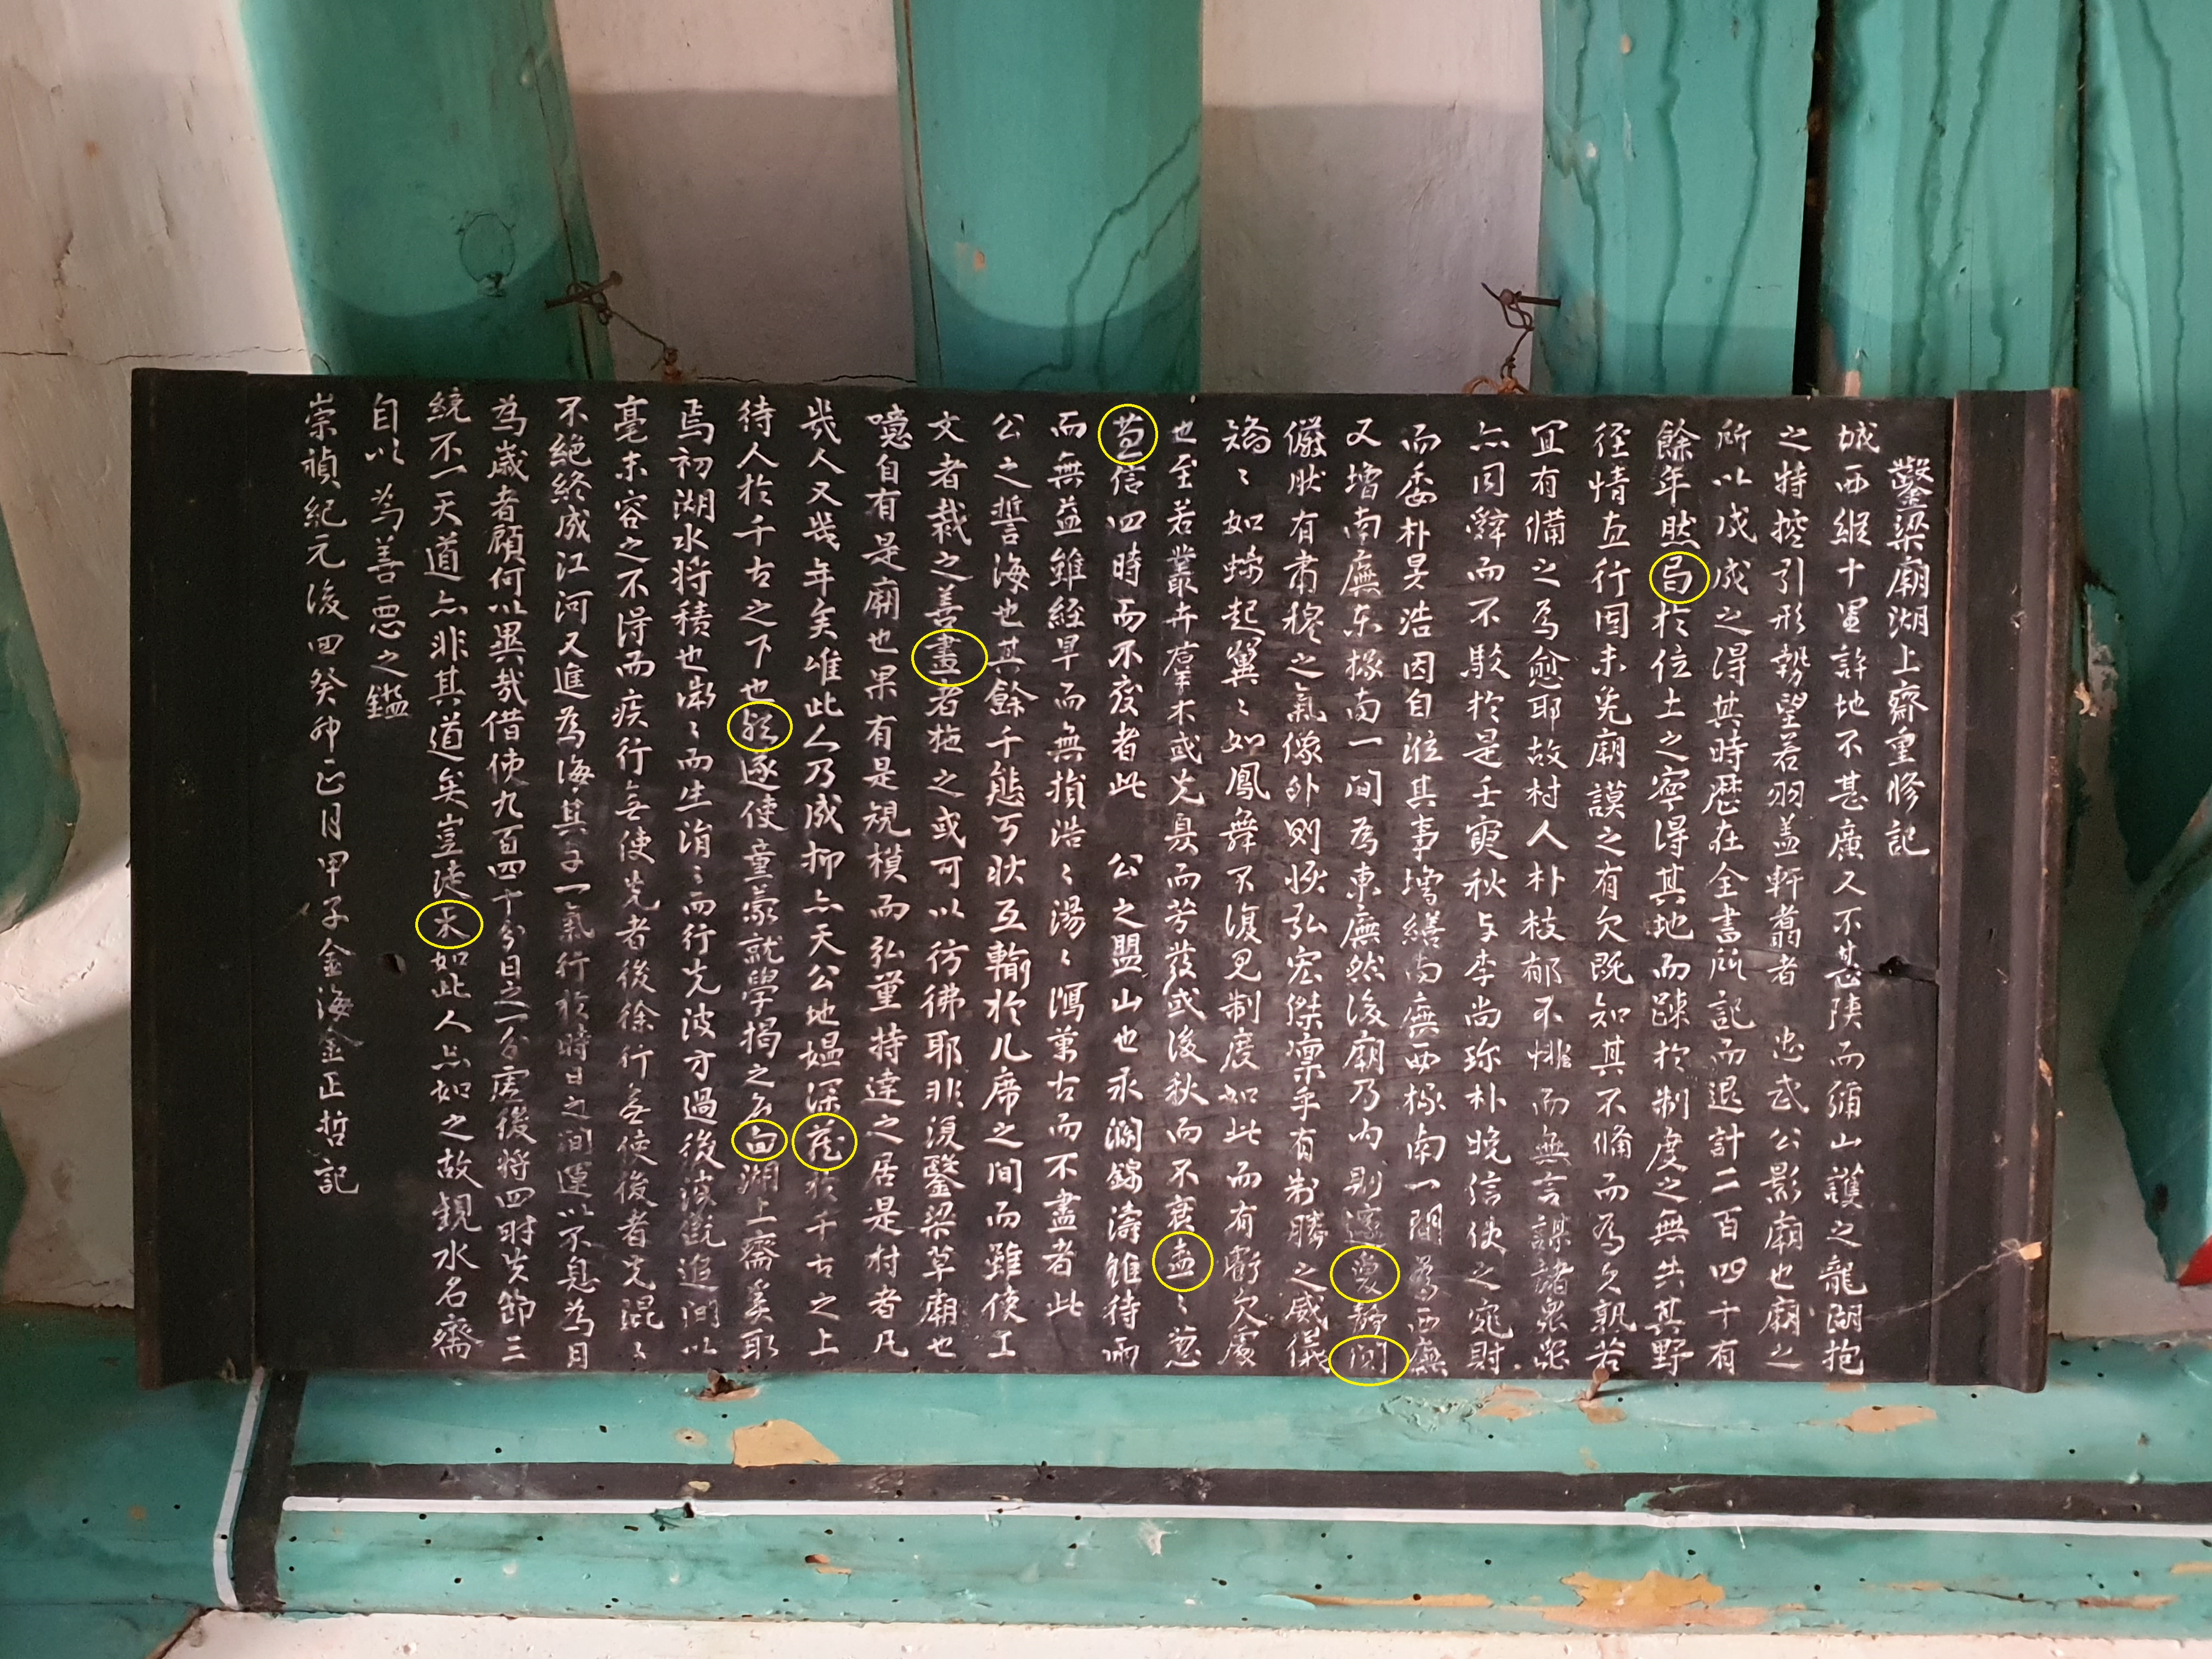 鑿梁廟湖上齋重修記
城西縱十里許地不甚廣又不甚陜而彌山護之龍湖抱
之特控引形勢望若羽盖軒翥者 忠武公影廟也廟之
所以成成之得其時曆在全書所記而退計二百四十有
餘年然局於位土之寧得其地而踈於制度之無共其野
徑情直行固未免廟謨之有欠既知其不備而為欠孰若
冝有備之為愈耶故村人朴枝郁不 而無言謀諸衆
亦同辭而不駁於是壬寅秋与李尚珎朴晩信使之 財
而委朴昊浩因自 其事 繕南廡西椽南一間為西廡
又 南廡東椽南一間為東廡然後廟乃內則 静
儼肰有肅穆之氣像外則恢弘宏傑凛乎有制勝之威儀
矯〻如蜷起翼〻如鳳舞不復見制度如此而有虧欠處
也至若叢卉羣木或先臭而芳發或後秋而不衰 〻葱
 信四時而不变者此 公之盟山也永 錦濤雖待雨
而無益雖経旱而無損浩〻湯〻瀉萬古而不盡者此
公之誓海也其餘千態万狀互輸於几席之间而雖使工
文者裁之善畫者 之或可以彷彿耶非復鑿梁草廟也
噫自有是廟也果有是規模而弘 持達之居是村者凡
幾人又幾年矣唯此人乃成抑亦天公地媼深 於千古之上
待人於千古之下也 遂使童蒙就學揭之名曰湖上齋葢取
焉初湖水將積也漸〻而生涓〻而行先波才過後波 追间以
毫末容之不得而疾行無使先者後徐行無使後者先混〻
不絶終成江河又進為海其与一氣行於時日之间運以不息為月
為歲者顧何以異哉借使九百四十分日之一分虛後將四時失節三
統不一天道亦非其道矣豈徒 如此人亦如之故觀水名齋
自以為善惡之鑑
崇禎紀元後四癸卯正月甲子金海金正哲記